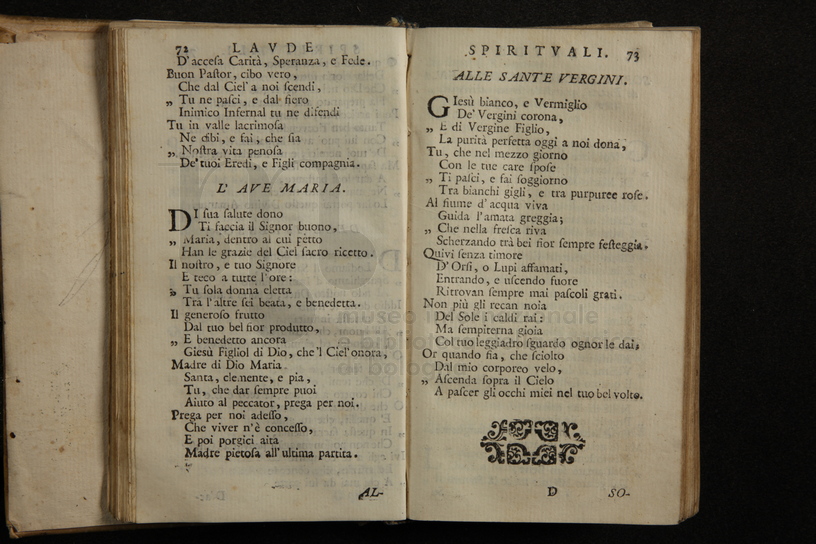 72 LAVDE
D'accesa Carità, Speranza, e Fede.
Buon Pastor, cibo vero,
Che dal Ciel' a noi scendi,
„ Tu ne pasci, e dal fiero
Inimico Infernal tu ne difendi
Tu in valle lacrimosa
Ne cibi, e fai, che sia
„ Nostra vita penosa
De' tuoi Eredi, e Figli compagnia.
L' AVE MARIA.
DI sua salute dono
Ti faccia il Signor buono,
„ Maria, dentro al cui petto
Han le grazie del Ciel sacro ricetto.
Il nostro, e tuo Signore
E teco a tutte l'ore:
„ Tu sola donna eletta
Tra l'altre sei beata, e benedetta.
Il generoso frutto
Dal tuo bel fior produtto,
„ E benedetto ancora
Giesù Figliol di Dio, che'l Ciel'onora,
Madre di Dio Maria
Santa, clemente, e pia,
Tu, che dar sempre puoi
Aiuto al peccator, prega per noi.
Prega per noi adesso,
Che viver n'è concesso,
E poi porgici aita
Madre pietosa all'ultima partita.
AL-
SPIRITVALI. 73
ALLE SANTE VERGINI.
GIesù bianco, e Vermiglio
De' Vergini corona,
„ E di Vergine Figlio,
La purità perfetta oggi a noi dona,
Tu, che nel mezzo giorno
Con le tue care spose
„ Ti pasci, e fai soggiorno
Tra bianchi gigli, e tra purpuree rose.
Al fiume d'acqua viva
Guida l'amata greggia;
„ Che nella fresca riva
Scherzando trà bei fior sempre festeggia.
Quivi senza timore
D'Orsi, o Lupi affamati,
Entrando, e uscendo fuore
Ritrovan sempre mai pascoli grati.
Non più gli recan noia
Del Sole i caldi rai:
Ma sempiterna gioia
Col tuo leggiadro sguardo ognor le dai,
Or quando fia, che sciolto
Dal mio corporeo velo,
„ Ascenda sopra il Cielo
A pascer gli occhi miei nel tuo bel volto.
D SO-